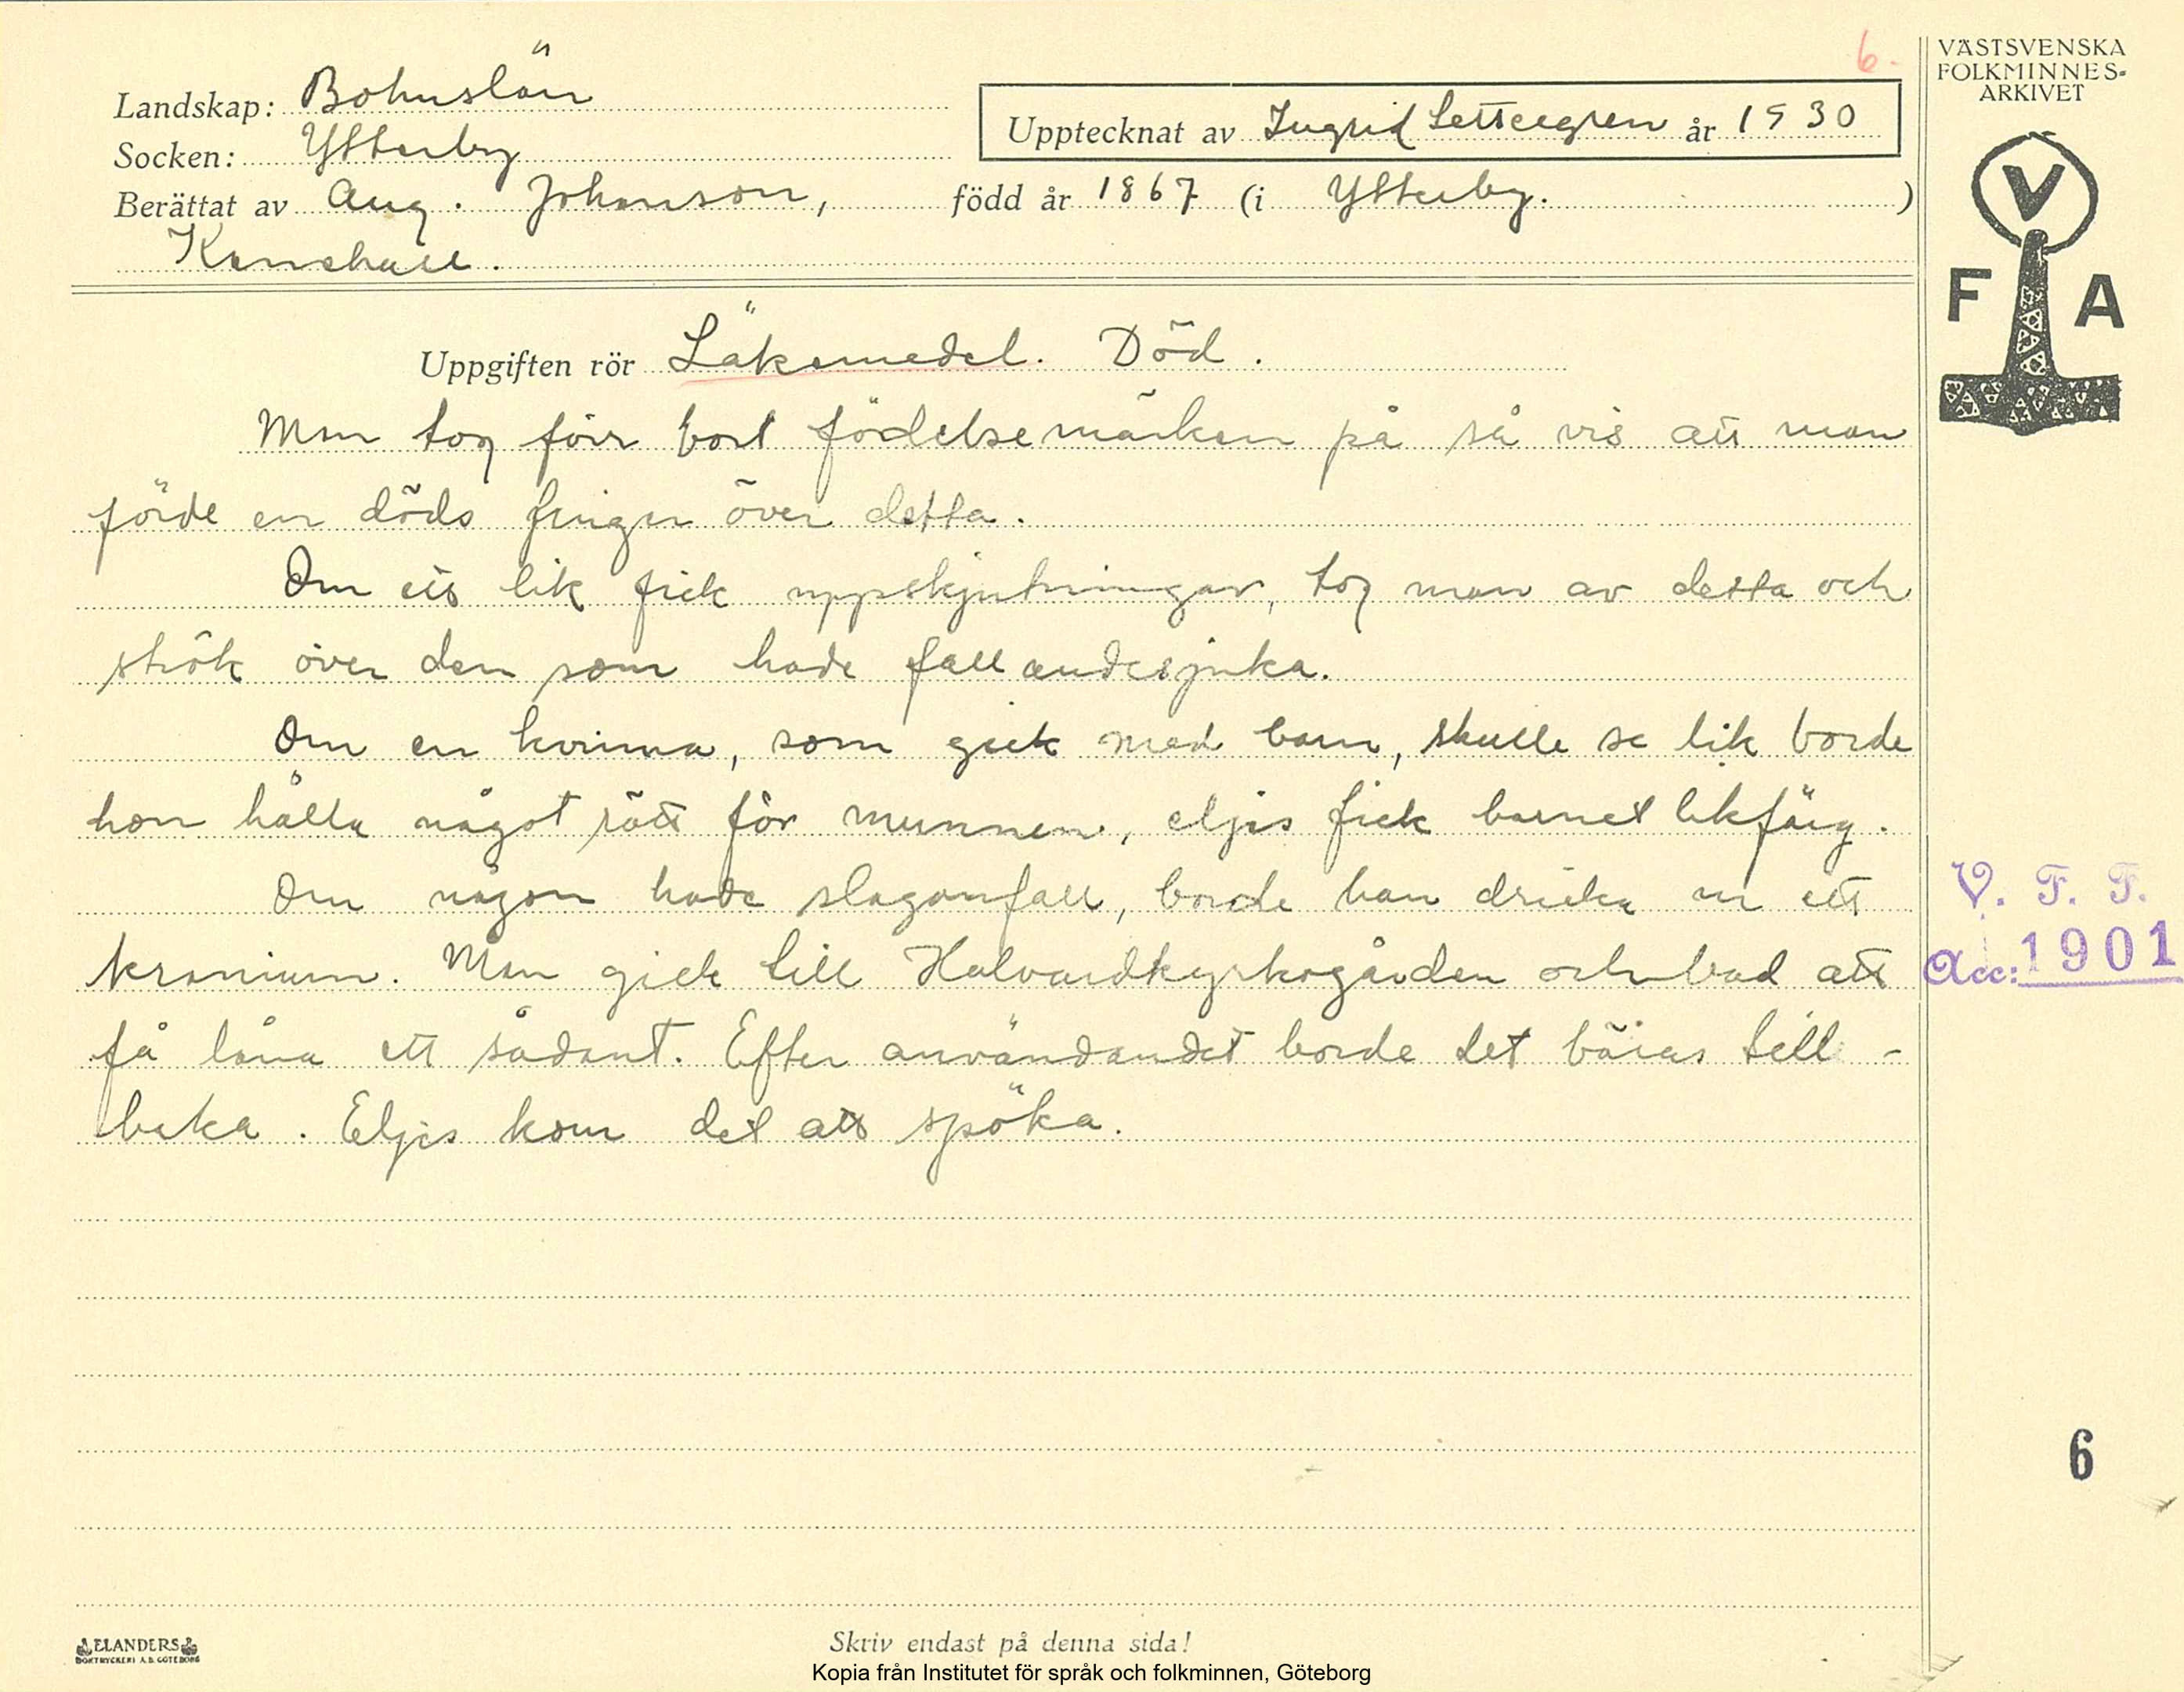 6.
VÄSTSVENSKA
FOLKMINNES-
ARKIVET
Landskap: Bohuslän
Upptecknat av Ingrid Settergren år 1930
Socken: Ytterby
Berättat av Aug. Johanson, född år 1867 (i Ytterby. )
V
F A
Uppgiften rör Läkemedel. Död.
Man tog förr bort födelsemärken på så vis att man
förde en döds finger över detta.
Om ett lik fick uppskjutningar, tog man av detta och
strök över den som hade fallandesjuka.
Om en kvinna, som gick med barn, skulle se lik borde
hon hålla något rött för munnen, eljes fick barnet likfärg.
Om någon hade slaganfall, borde han dricka ur ett
kranium. Man gick till Halvardkyrkogården och bad att
få låna ett sådant. Efter användandet borde det bäras till-
baka. Eljes kom det att spöka.
V. F. F.
Acc: 1901
6
ELANDERS
BOKTRYCKERI A.B. GÖTEBORG
Skriv endast på denna sida!
Kopia från Institutet för språk och folkminnen, Göteborg